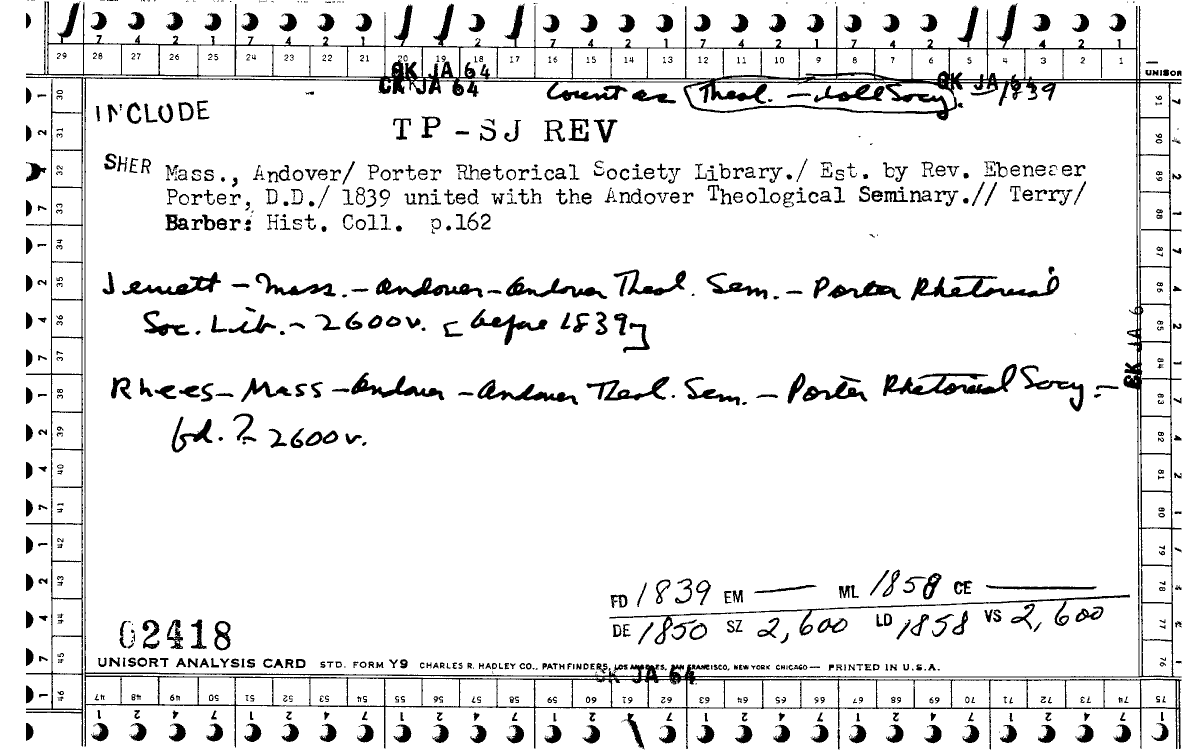 7 4 2 1 7 4 2 1 7 4 2 1 7 4 2 1 7 4 2 1 7 4 2 1 7 4 2 1
29 28 27 26 25 24 23 22 21 20 19 18 17 16 15 14 13 12 11 10 9 8 7 6 5 4 3 2 1
CK JA 64
CK JA 64
CK JA 64
UNISOR
Count as Theol. – Soc'y. – 1839
INCLUDE
TP-SJ REV
SHER Mass., Andover/ Porter Rhetorical Society Library./ Est. by Rev. Ebenezer
Porter, D.D./ 1839 united with the Andover Theological Seminary.// Terry/
Barber: Hist. Coll. p.162
Jewett – Mass. – Andover – Andover Theol. Sem. – Porter Rhetorical
Soc. Lib. – 2600v. [before 1839]
Rhees – Mass – Andover – Andover Theol. Sem. – Porter Rhetorical Socy. –
fd. ? – 2600v.
FD 1839 EM — ML 1858 CE —
DE 1850 SZ 2,600 LD 1858 VS 2,600
02418
UNISORT ANALYSIS CARD STD. FORM Y9 CHARLES R. HADLEY CO., PATHFINDERS, LOS ANGELES, SAN FRANCISCO, NEW YORK CHICAGO — PRINTED IN U.S.A.
CK JA 64
30 31 32 33 34 35 36 37 38 39 40 41 42 43 44 45 46
91 90 89 88 87 86 85 84 83 82 81 80 79 78 77 76 75
CK JA 6
47 48 49 50 51 52 53 54 55 56 57 58 59 60 61 62 63 64 65 66 67 68 69 70 71 72 73 74 75
1 2 4 7 1 2 4 7 1 2 4 7 1 2 4 7 1 2 4 7 1 2 4 7 1 2 4 7 1